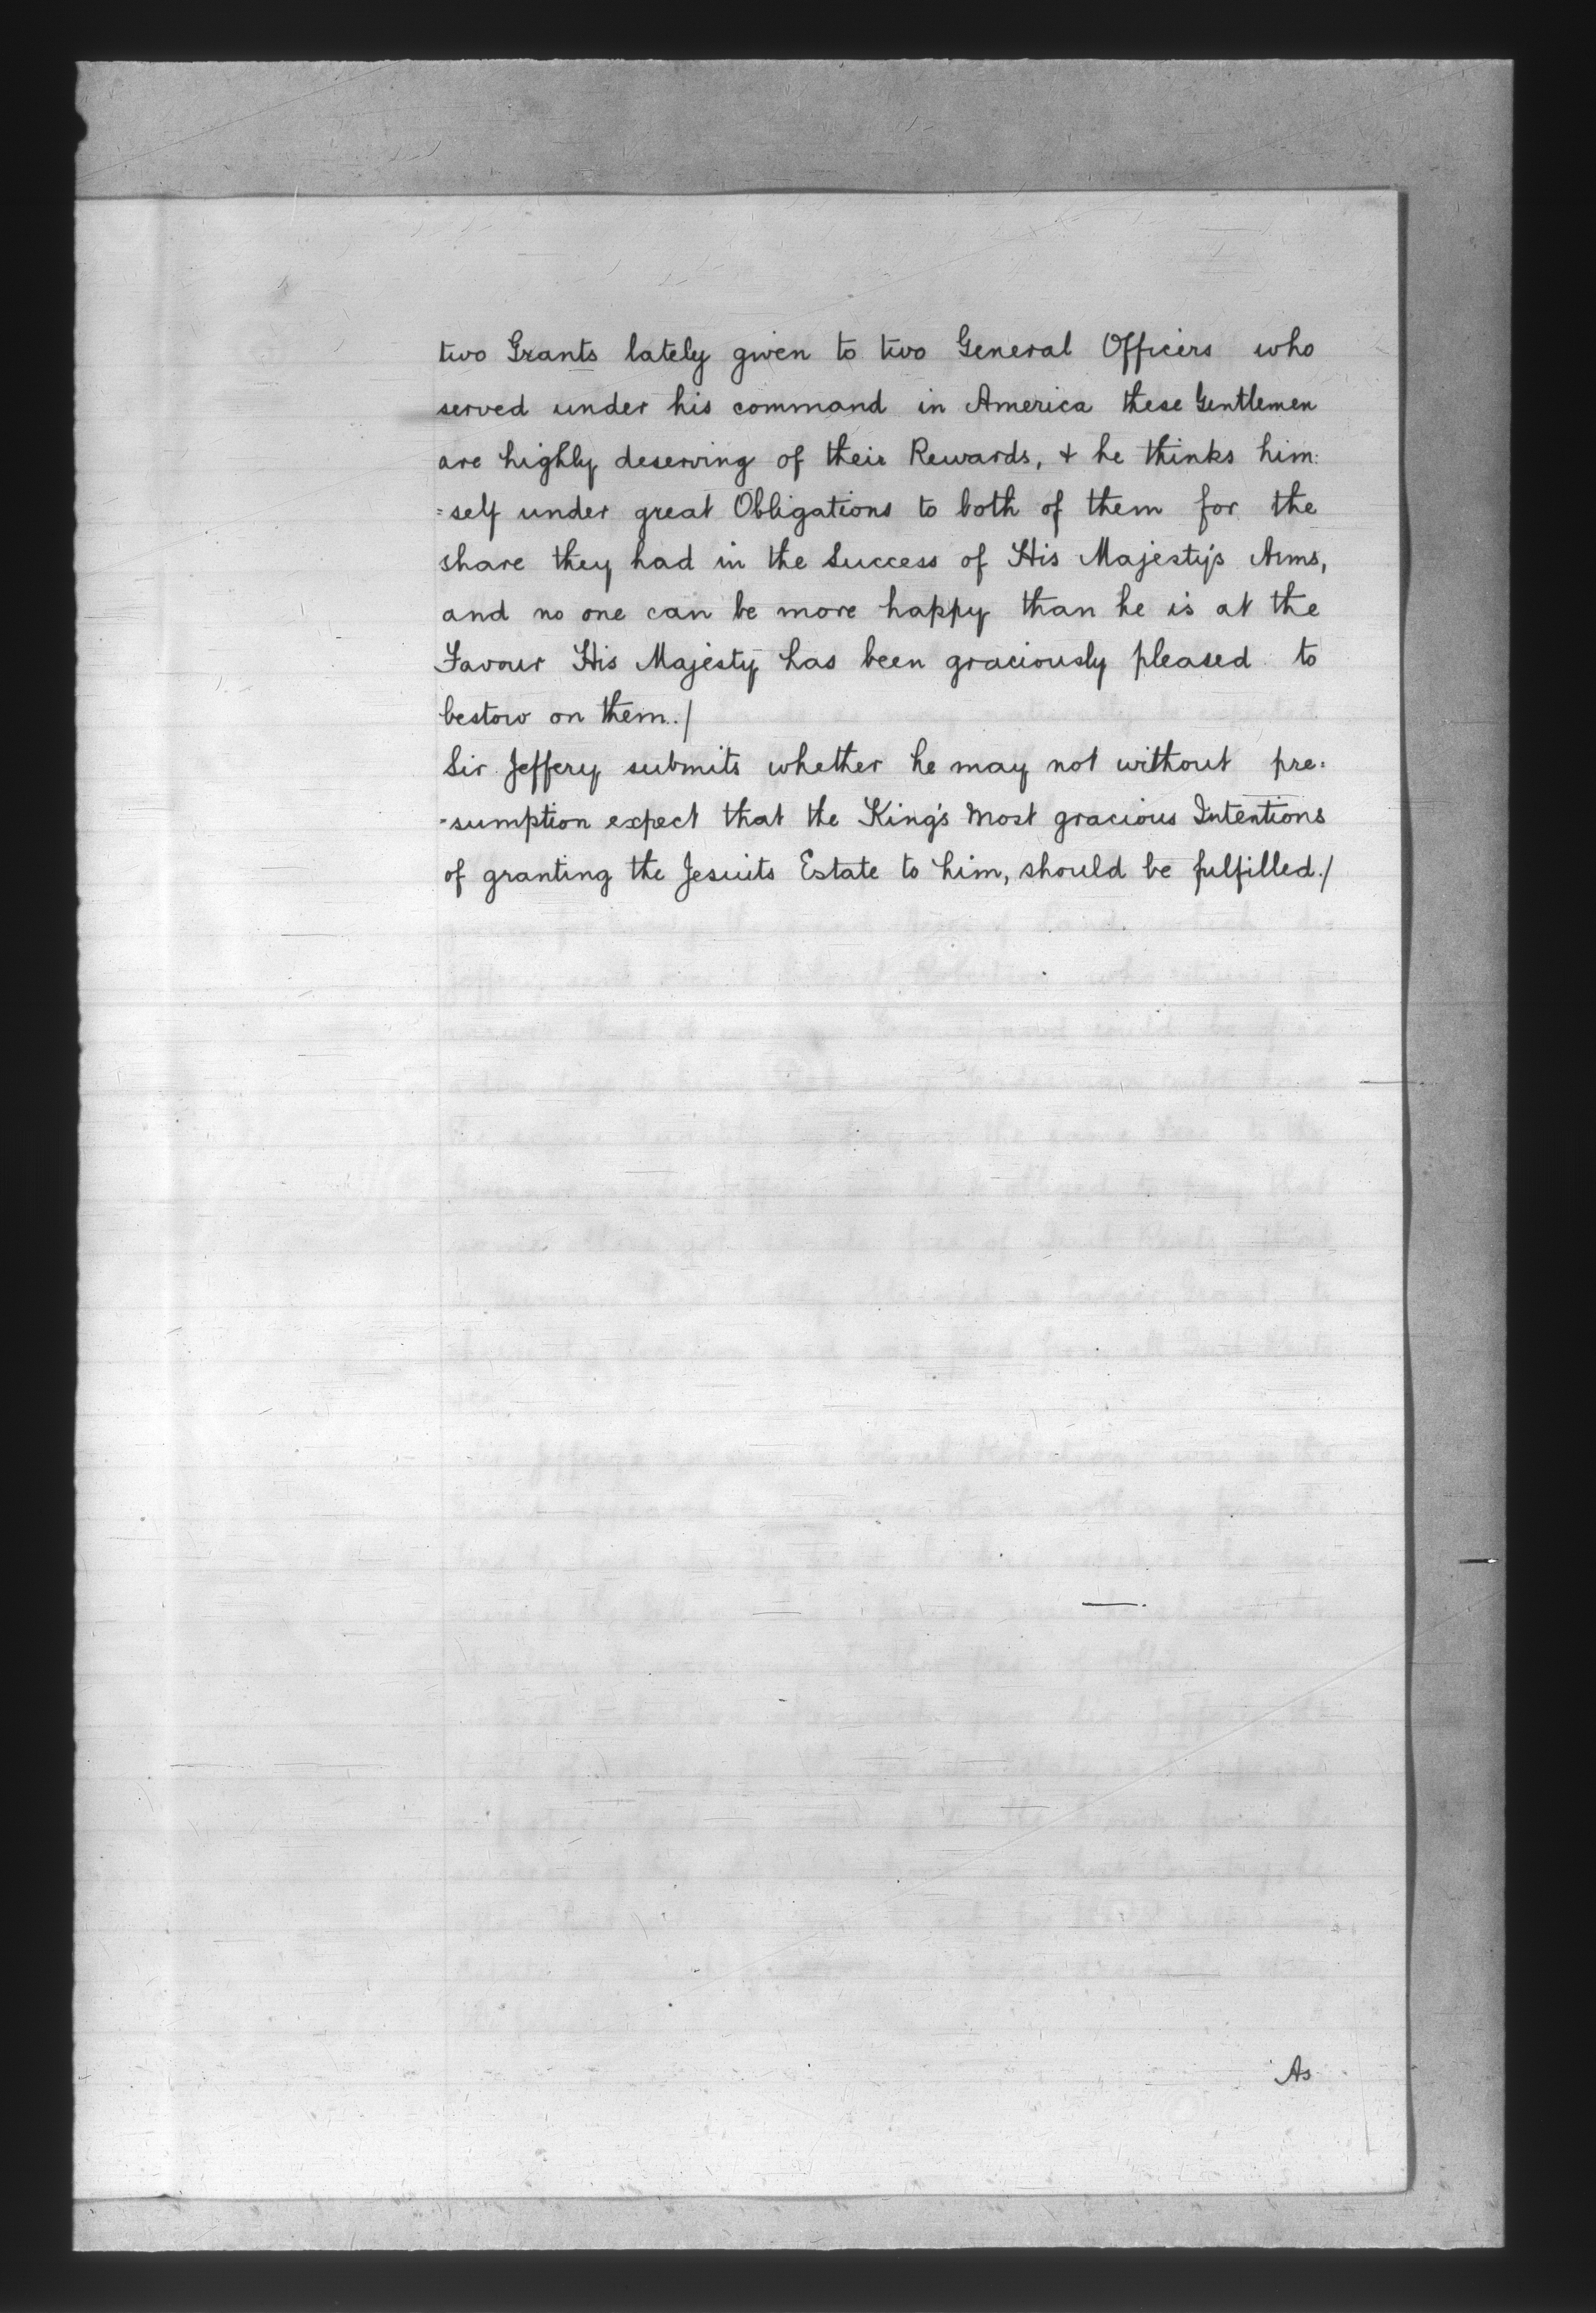 two Grants lately given to two General Officers who
served under his command in America these Gentlemen
are highly deserving of their Rewards, & he thinks him:
=self under great Obligations to both of them for the
share they had in the Success of His Majesty's Arms,
and no one can be more happy than he is at the
Favour His Majesty has been graciously pleased to
bestow on them./
Sir Jeffery submits whether he may not without pre:
-sumption expect that the King's most gracious Intentions
of granting the Jesuits Estate to him, should be fulfilled./
As